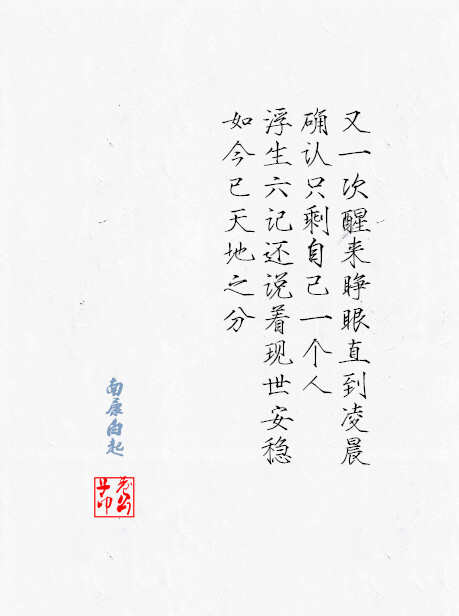 又一次醒来睁眼直到凌晨
确认只剩自己一个人
浮生六记还说着现世安稳
如今已天地之分
南康白起